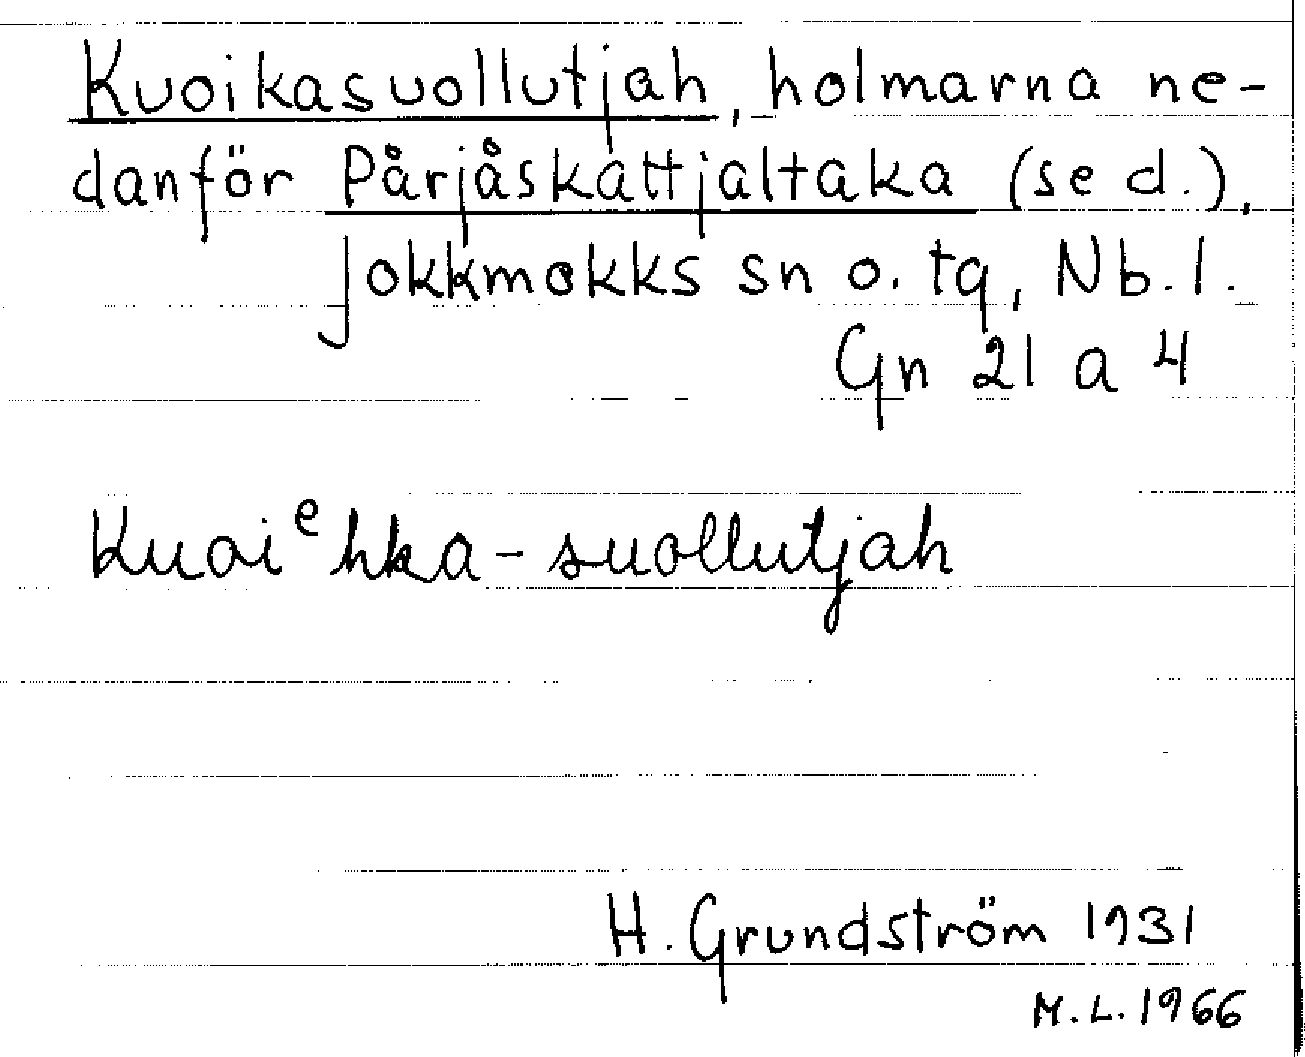 Kuoikasuollutjah, holmarna ne-
danför Pårjåskåttjaltaka (se d.),
Jokkmokks sn o. tg, Nb. l.
Gn 21 a 4
Kuoiᵉhka-suollutjah
H. Grundström 1931
M.L. 1966